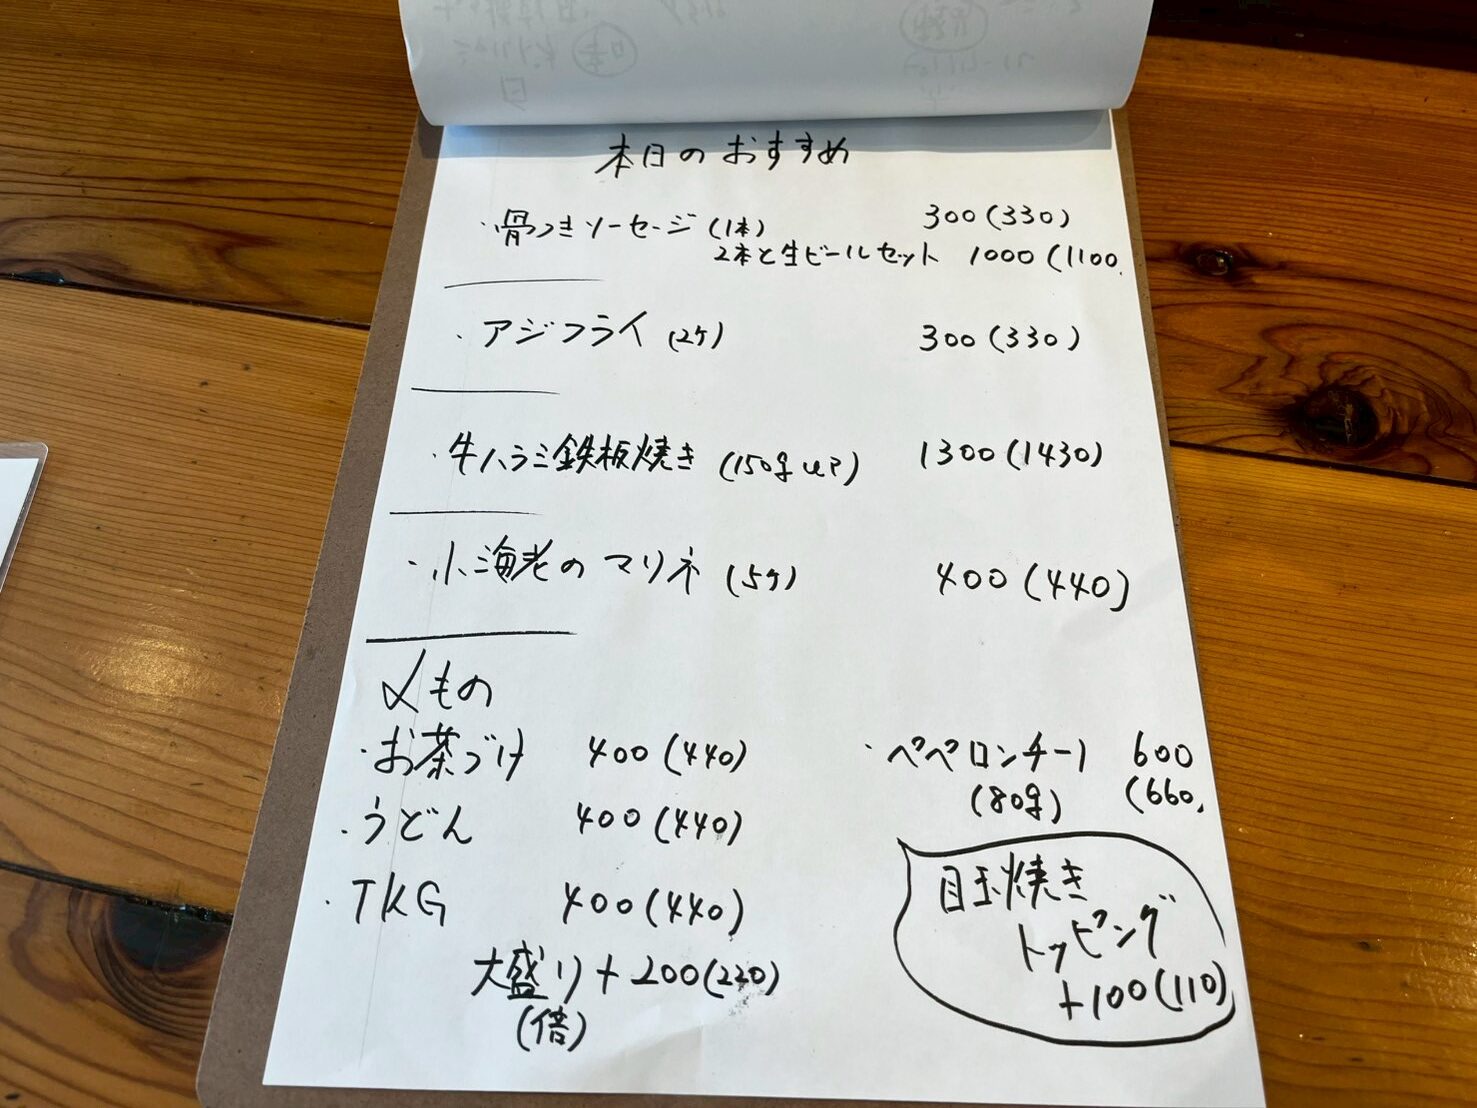 本日のおすすめ
・骨つきソーセージ (1本) 300(330)
2本と生ビールセット 1000(1100
・アジフライ (2ケ) 300(330)
・牛ハラミ鉄板焼き (150g以上) 1300(1430)
・小海老のマリネ (5ケ) 400(440)
〆もの
・お茶づけ 400(440)
・ペペロンチーノ 600
(80g) (660
・うどん 400(440)
・TKG 400(440)
大盛り+200(220)
(倍)
目玉焼き
トッピング
+100(110)